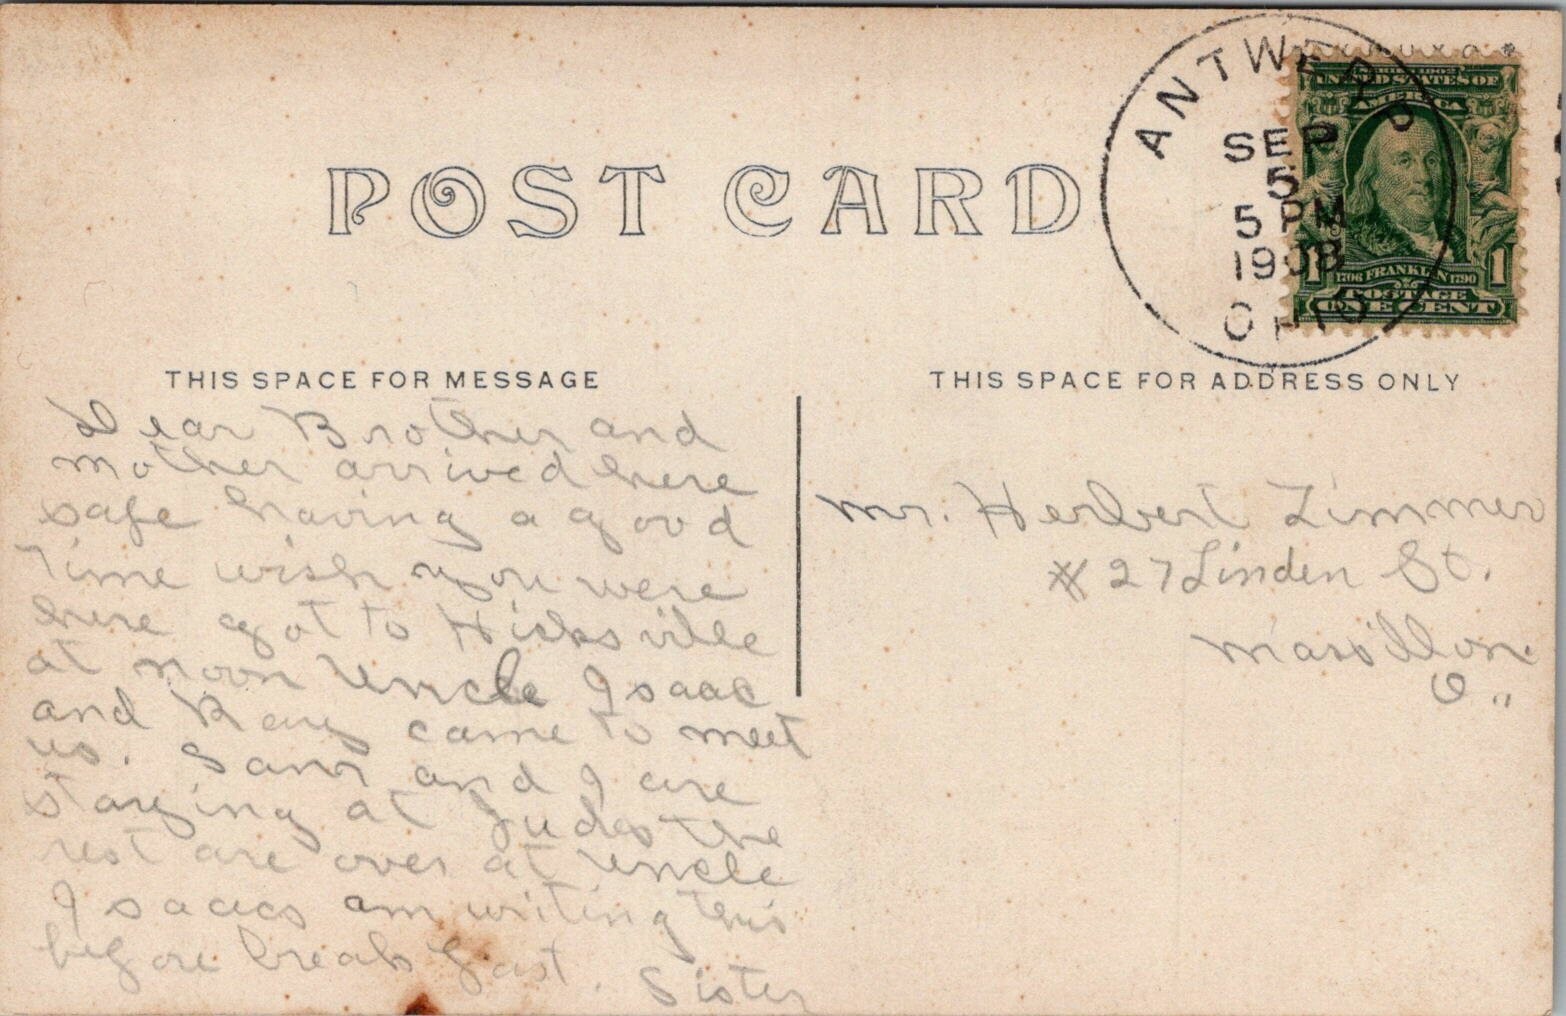 POST CARD
ANTWERP
SEP
5
5 PM
1908
OHIO
SERIES 1902
UNITED STATES OF
AMERICA
1 1
1706 FRANKLIN 1790
POSTAGE
ONE CENT
THIS SPACE FOR MESSAGE
Dear Brother and
mother arrived here
safe having a good
Time wish you were
here got to Hicksville
at noon Uncle Isaac
and Ray came to meet
us. Sam and I are
staying at Judes the
rest are over at Uncle
Isaacs am writing this
before breakfast.
Sister
THIS SPACE FOR ADDRESS ONLY
Mr. Herbert Zimmer
# 27 Linden St.
Massillon.
O..